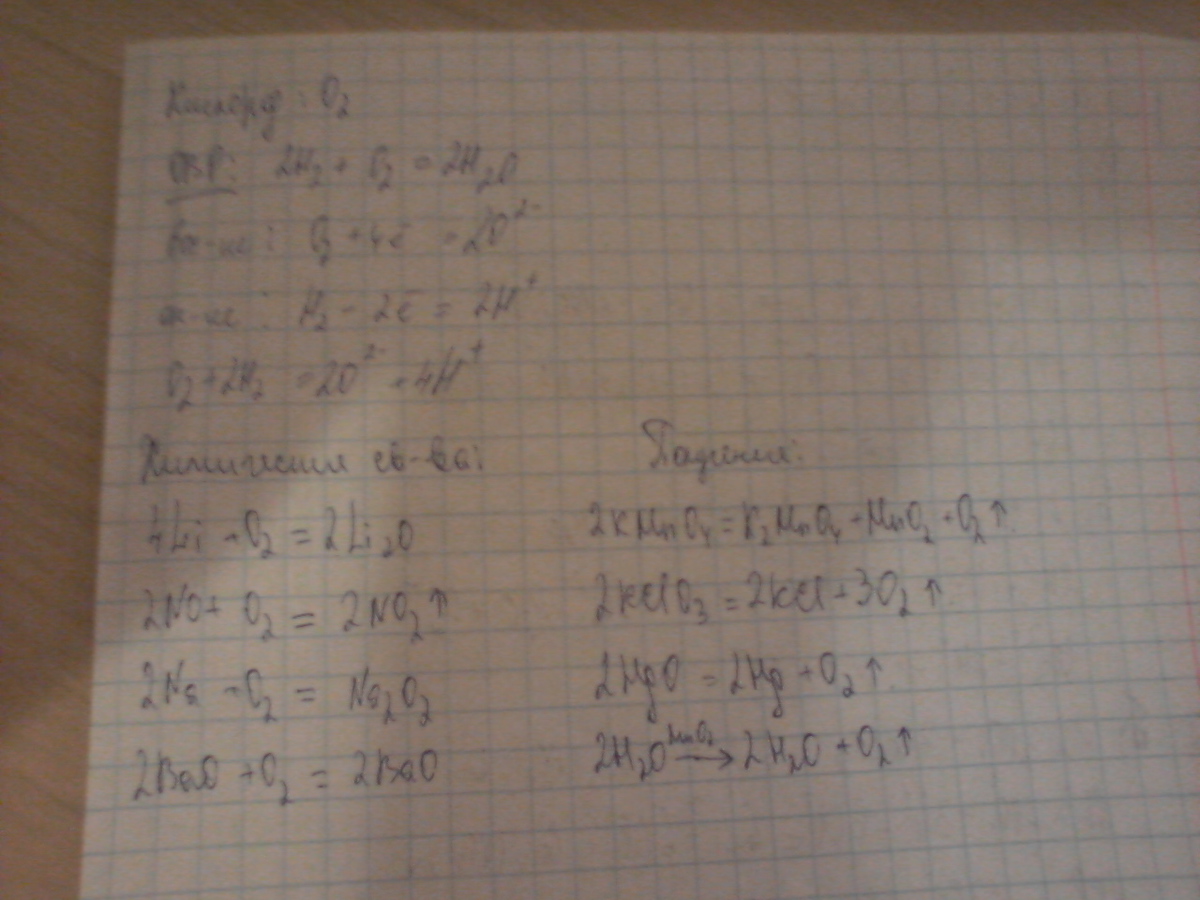 Кислород: O₂
ОВР: 2H₂ + O₂ = 2H₂O
вос-ие: O₂ + 4ē = 2O²⁻
ок-ие: H₂ - 2ē = 2H⁺
O₂ + 2H₂ = 2O²⁻ + 4H⁺
Химические св-ва:
4Li + O₂ = 2Li₂O
2NO + O₂ = 2NO₂↑
2Na + O₂ = Na₂O₂
2BaO + O₂ = 2BaO
Получения:
2KMnO₄ = K₂MnO₄ + MnO₂ + O₂↑
2KClO₃ = 2KCl + 3O₂↑
2HgO = 2Hg + O₂↑
2H₂O MnO₂→ 2H₂O + O₂↑